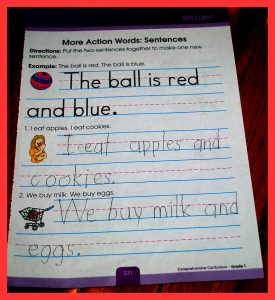 SPELLING
More Action Words: Sentences
Directions: Put the two sentences together to make one new
sentence.
Example: The ball is red. The ball is blue.
The ball is red
and blue.
1. I eat apples. I eat cookies.
I eat apples and
cookies.
2. We buy milk. We buy eggs.
We buy milk and
eggs.
331
Comprehensive Curriculum - Grade 1